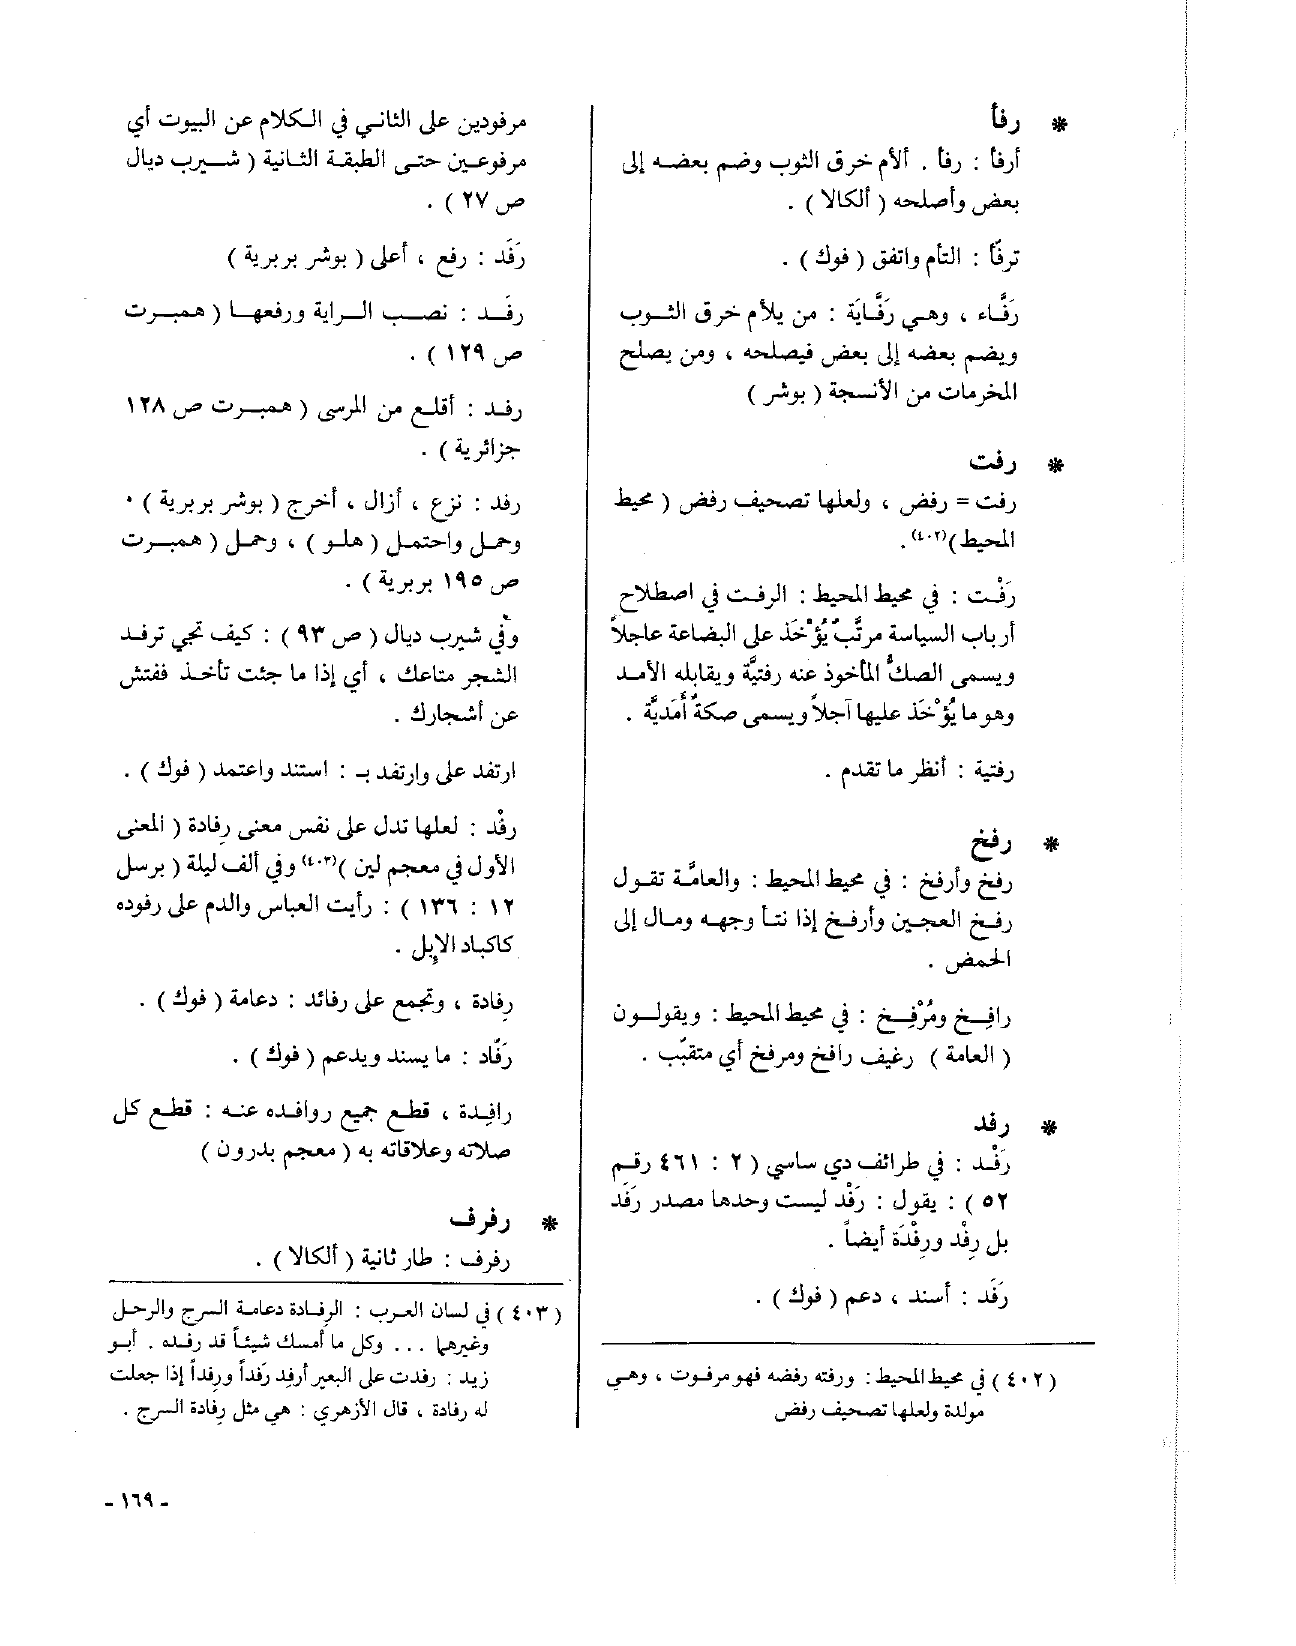 * رفأ
أرفأ : رفأ . ألأم خرق الثوب وضم بعضه إلى
بعض وأصلحه ( ألكالا ) .
ترفّأ : التأم واتفق ( فوك ) .
رَفَّاء ، وهي رَفَّايَة : من يلأم خرق الثوب
ويضم بعضه إلى بعض فيصلحه ، ومن يصلح
المخرمات من الأنسجة ( بوشر )
* رفت
رفت = رفض ، ولعلها تصحيف رفض ( محيط
المحيط )(٤٠٢).
رَفْت : في محيط المحيط : الرفت في اصطلاح
أرباب السياسة مرتَّبٌ يُؤْخَذ على البضاعة عاجلاً
ويسمى الصكُّ المأخوذ عنه رفتيَّة ويقابله الأمد
وهو ما يُؤْخَذ عليها آجلاً ويسمى صكةٌ أَمَديَّة .
رفتية : أنظر ما تقدم .
* رفخ
رفخ وأرفخ : في محيط المحيط : والعامَّة تقول
رفخ العجين وأرفخ إذا نتأ وجهه ومال إلى
الحمض .
رافِخ ومُرْفِخ : في محيط المحيط : ويقولون
( العامة ) رغيف رافخ ومرفخ أي متقبِّب .
* رفد
رَفْد : في طرائف دي ساسي ( ٢ : ٤٦١ رقم
٥٢ ) : يقول : رَفْد ليست وحدها مصدر رَفَد
بل رِفْد ورِفْدَة أيضاً .
رَفَد : أسند ، دعم ( فوك ) .
( ٤٠٢ ) في محيط المحيط : ورفته رفضه فهو مرفوت ، وهي
مولدة ولعلها تصحيف رفض
مرفودين على الثاني في الكلام عن البيوت أي
مرفوعين حتى الطبقة الثانية ( شيرب ديال
ص ٢٧ ) .
رَفَد : رفع ، أعلى ( بوشر بربرية )
رفَد : نصب الراية ورفعها ( همبرت
ص ١٢٩ ) .
رفد : أقلع من المرسى ( همبرت ص ١٢٨
جزائرية ) .
رفد : نزع ، أزال ، أخرج ( بوشر بربرية ) .
وحمل واحتمل ( هلو ) ، وحمل ( همبرت
ص ١٩٥ بربرية ) .
وفي شيرب ديال ( ص ٩٣ ) : كيف تجي ترفد
الشجر متاعك ، أي إذا ما جئت تأخذ ففتش
عن أشجارك .
ارتفد على وارتفد بـ : استند واعتمد ( فوك ) .
رِفْد : لعلها تدل على نفس معنى رِفادة ( المعنى
الأول في معجم لين )(٤٠٣) وفي ألف ليلة ( برسل
١٢ : ١٣٦ ) : رأيت العباس والدم على رفوده
كاكباد الإبل .
رِفادة ، وتجمع على رفائد : دعامة ( فوك ) .
رَفّاد : ما يسند ويدعم ( فوك ) .
رافِدة ، قطع جميع روافده عنه : قطع كل
صلاته وعلاقاته به ( معجم بدرون )
* رفرف
رفرف : طار ثانية ( ألكالا ) .
( ٤٠٣ ) في لسان العرب : الرفادة دعامة السرج والرحل
وغيرها ... وكل ما أمسك شيئاً قد رفده . أبو
زيد : رفدت على البعير أرفِد رَفداً ورِفداً إذا جعلت
له رفادة ، قال الأزهري : هي مثل رِفادة السرج .
- ١٦٩ -